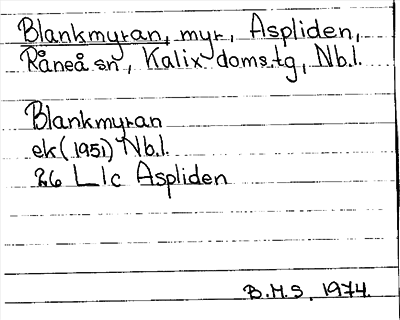 Blankmyran, myr, Aspliden,
Råneå sn, Kalix doms.tg, Nb.l.
Blankmyran
ek (1951) Nb.l.
26 L 1c Aspliden
B.M.S. 1974.